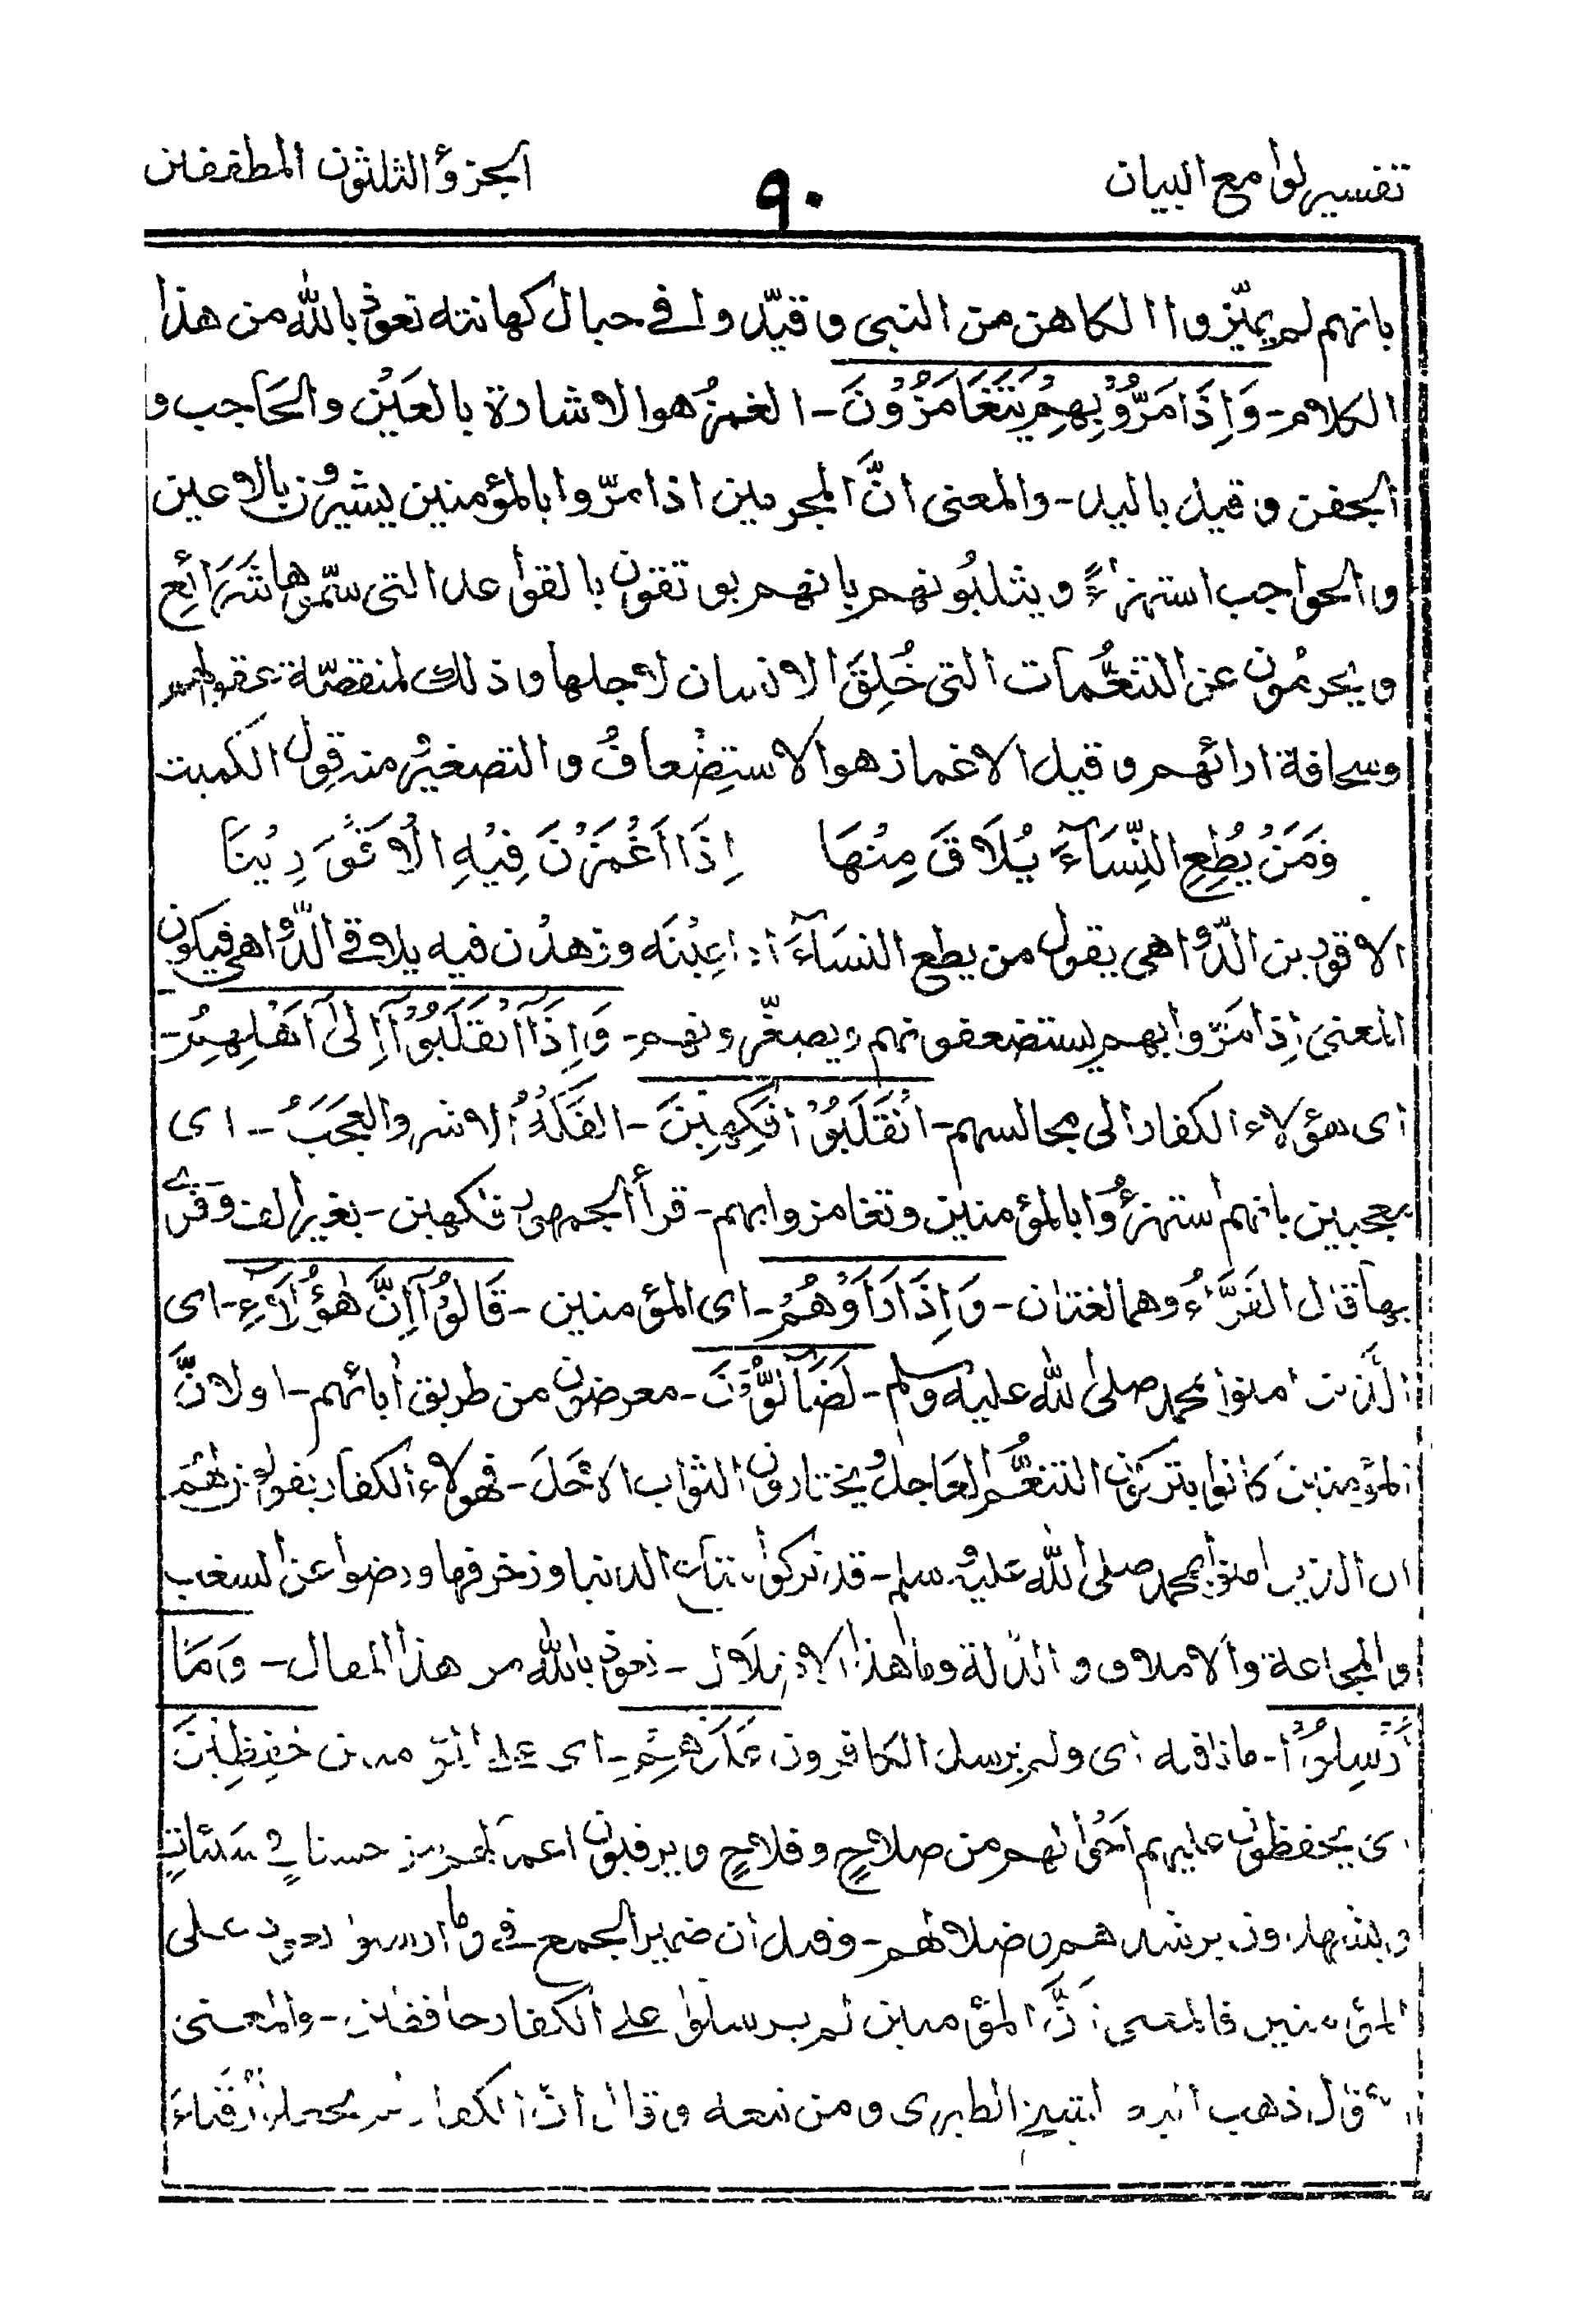 تفسير لوامع البيان ٩٠ الجزؤ الثلثون المطففين
بانهم لم يميّزوا الكاهن من النبى و قيّدوا فى حبال كهانته نعوذ بالله من هذا
الكلام - وَاِذَا مَرُّوْا بِهِمْ يَتَغَامَزُوْنَ - الغمزُ هوالاشارة بالعَيْن والحَاجب و
الجفن و قيل باليد - والمعنى انَّ المجرمين اذا مرّوا بالمؤمنين يشيرون بالاعين
والحواجب استهزاءً و يثلبُونهم بانهم يوتقون بالقواعد التى سمّوها شَرَائِع
و يحرمُون عن التنعُّمات التى خُلِقَ الانسان لاجلها و ذلك لمنقصة عقولهم
وسخافة ارائهم و قيل الاغماز هوالاستِضْعافُ والتصغيْر منه قول الكميت
وَمَنْ يُطِعِ النِّسَآءَ يُلَاقَ مِنْهَا اِذَا اَغْمَزْنَ فِيْهِ الْاَقْوَرِيْنَا
الاقورين الدّواهى يقول من يطع النسَآءَ اذا عِبْنَه وزهدْن فيه يلاقى الدّواهى فيكون
المعنى اِذا مَرّوا بهم يستضعفونهم ويصغّرونهم - وَاِذَا انْقَلَبُوْآ اِلىٰ اَهْلِهِمُ -
اى هؤلاء الكفار الى مجالسهم - انْقَلَبُوْا فَكِهِيْنَ - الفَكَهُ الاشر والعجَبَ - اى
معجبين بانهم استهزءُوا بالمؤمنين وتغامزوا بهم - قرأ الجمهور فاكهين - بغير الف وقرئ
بها قال الفرَّاءُ وهما لغتان - وَاِذَا رَاَوْهُمْ - اى المؤمنين - قَالُوْآ اِنَّ هٰؤُلَآءِ - اى
الَّذين امنوا بمحمد صلى الله عليه وسلم - لَضَآلُّوْنَ - معرضون من طريق أبائهم - او لانَّ
المؤمنين كانوا يتركون التنعُّم العاجل ويختارون الثواب الاٰجَلَ - فهولاء الكفار يقولون
ان الذين امنوا بمحمد صلى الله عليه وسلم - قد تركوا الدنيا وزخرفها ورضوا عن السغب
والمجاعة والاملاق و الذلة وما هذا الا ضلال - نعوذ بالله من هذا المقال - وَمَا
اُرْسِلُوْا - ما نافيه اى ولم يرسل الكافرون عَلَيْهِمْ - اى على المؤمنين حٰفِظِيْنَ
اى يحفظون عليهم احوالهم من صلاحٍ و فلاحٍ و يرقبون اعمالهم من حسناتٍ و سيئاتٍ
هم و ضلالهم - وقيل ان ضمير الجمع فى وما ارسلوا يعود على
المؤمنين فالمعنى اَنَّ المؤمنين لم يرسلوا على الكفار حافظين - والمعنى
ذهب الطبرى ومن تبعه و قال انّ الكفار لم يجعلوا رُقَباءَ